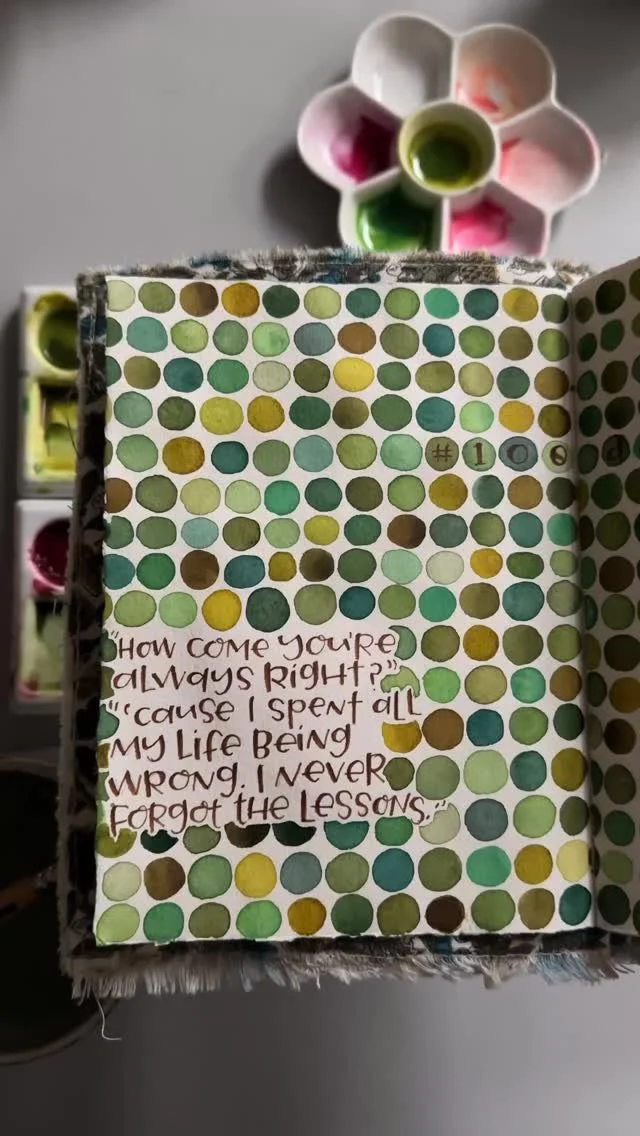 #100 d
"How come you're
always right?"
"'cause I spent all
my life being
wrong. I never
forgot the lessons."